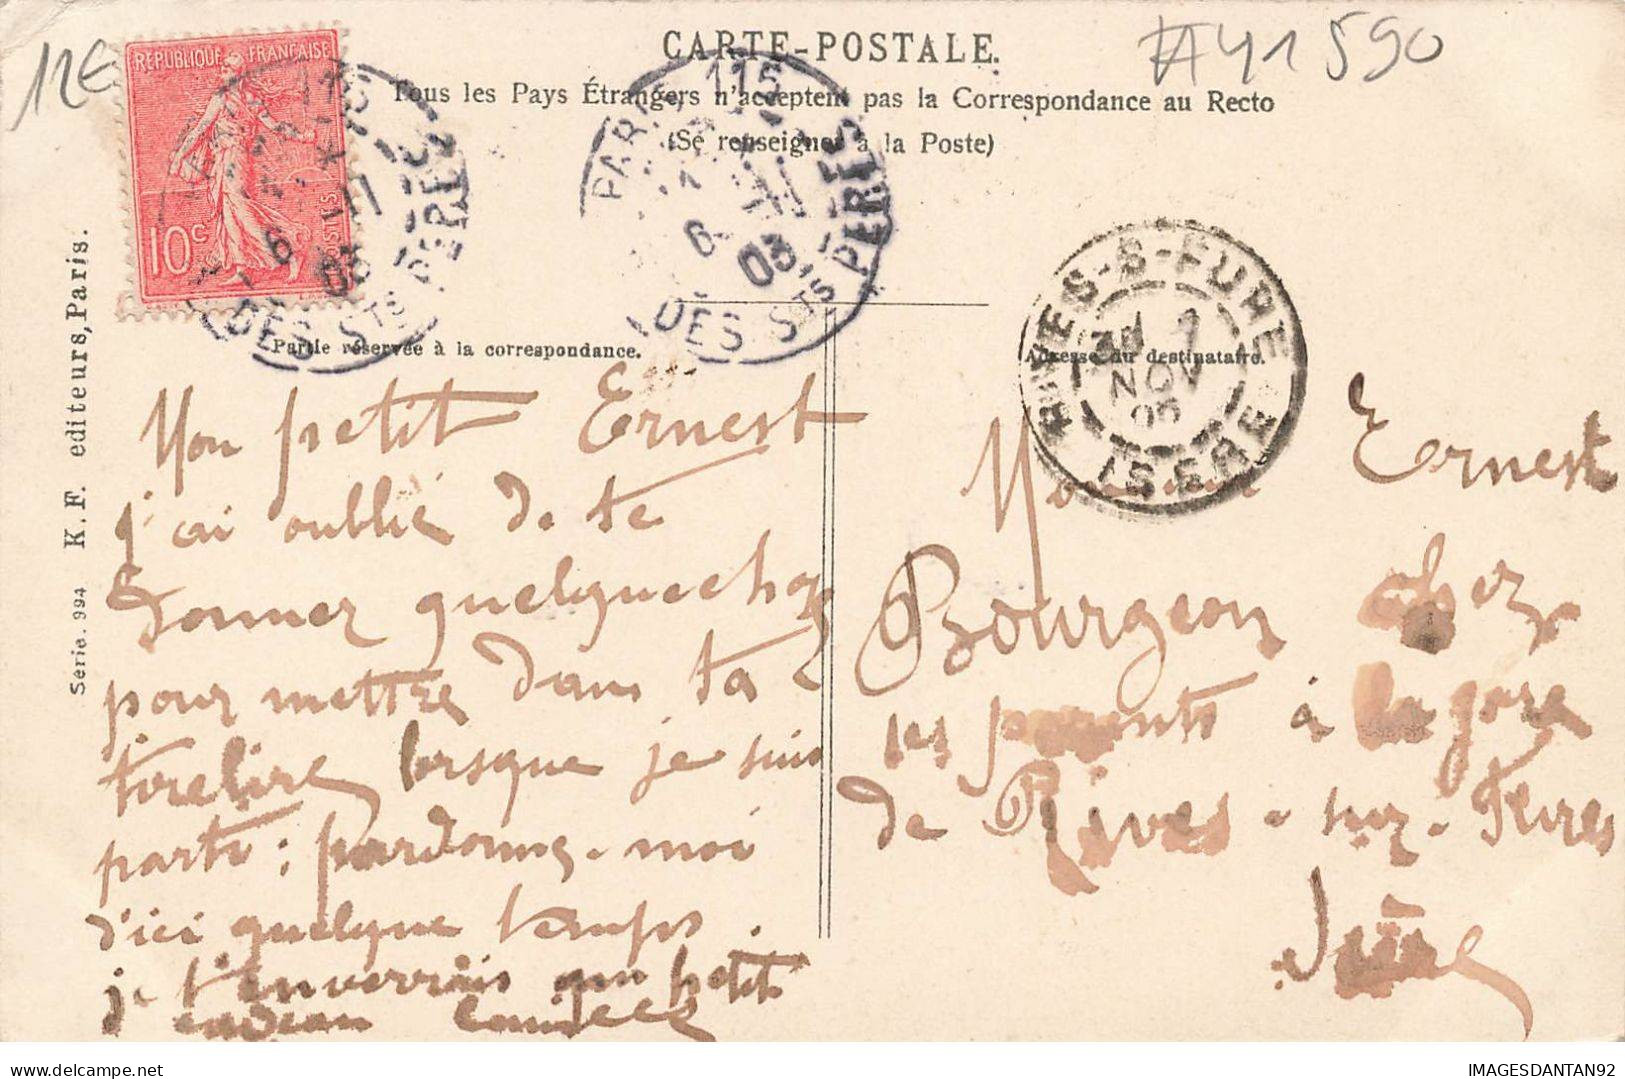 12€
#41590
RÉPUBLIQUE FRANÇAISE
10c POSTES
CARTE-POSTALE.
Tous les Pays Étrangers n'acceptent pas la Correspondance au Recto
(Se renseigner à la Poste)
PARIS 115
6
05
DES STS PÈRES
PARIS 115
6
05
DES STS PÈRES
RIVES-S-FURE
7
NOV
05
ISERE
Partie réservée à la correspondance.
Adresse du destinataire.
Série. 994 K. F. editeurs, Paris.
Mon petit Ernest
j'ai oublié de te
donner quelque chose
pour mettre dans ta
tirelire lorsque je suis
parti ; pardonne-moi
d'ici quelque temps
je t'enverrais un petit
cadeau Camille
Monsieur Ernest
Bourgeon chez
ses parents à la gare
de Rives-sur-Fures
Isère
IMAGESDANTAN92